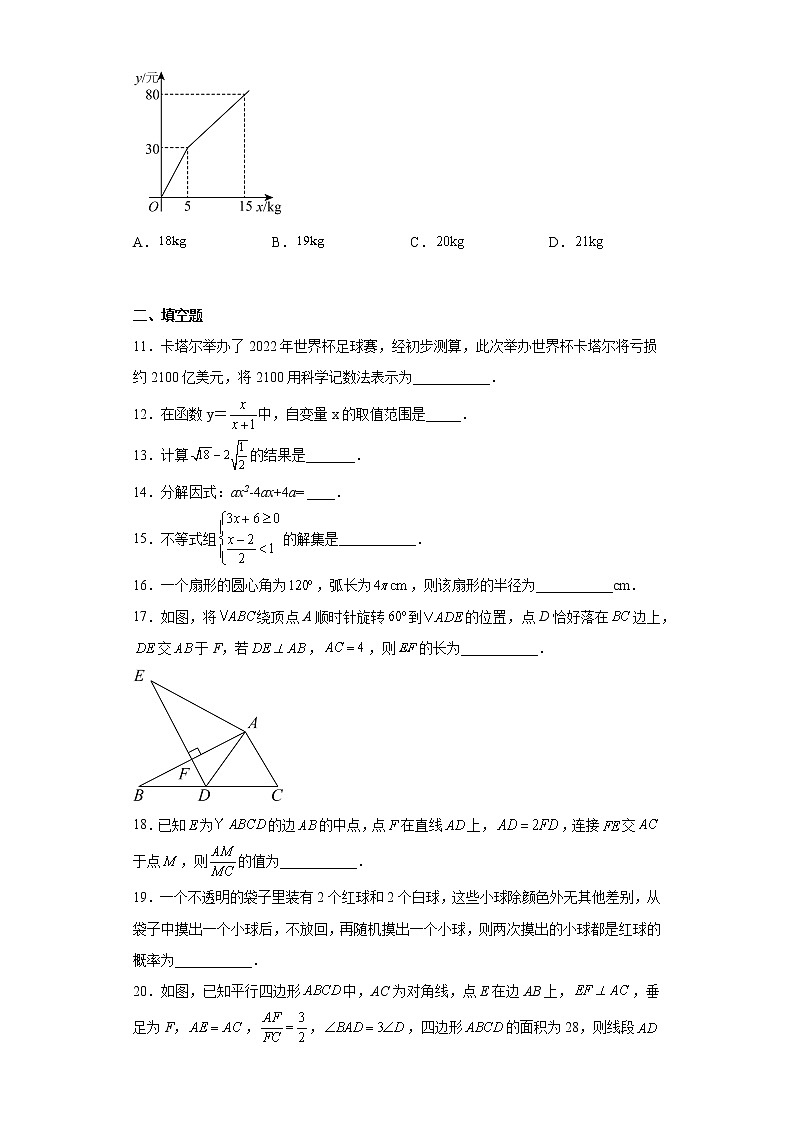 y/元
80
30
O 5 15 x/kg
A．18kg B．19kg C．20kg D．21kg
二、填空题
11．卡塔尔举办了 2022 年世界杯足球赛，经初步测算，此次举办世界杯卡塔尔将亏损
约 2100 亿美元，将 2100 用科学记数法表示为___________．
12．在函数 y＝x/(x+1)中，自变量 x 的取值范围是_____．
13．计算√18－2√(1/2)的结果是_______．
14．分解因式：ax²-4ax+4a= ____．
15．不等式组{3x+6≥0 (x−2)/2<1 的解集是___________．
16．一个扇形的圆心角为120°，弧长为4πcm，则该扇形的半径为___________cm．
17．如图，将VABC绕顶点 A 顺时针旋转60°到VADE的位置，点 D 恰好落在BC边上，
DE交AB于 F，若DE⊥AB，AC=4，则EF的长为___________．
E
A
F
B D C
18．已知E为Y ABCD的边AB的中点，点F在直线AD上，AD=2FD，连接FE交AC
于点M，则AM/MC的值为___________．
19．一个不透明的袋子里装有 2 个红球和 2 个白球，这些小球除颜色外无其他差别，从
袋子中摸出一个小球后，不放回，再随机摸出一个小球，则两次摸出的小球都是红球的
概率为___________．
20．如图，已知平行四边形ABCD中，AC为对角线，点 E 在边 AB 上，EF⊥AC，垂
足为 F，AE=AC，AF/FC=3/2，∠BAD=3∠D，四边形ABCD的面积为 28，则线段AD